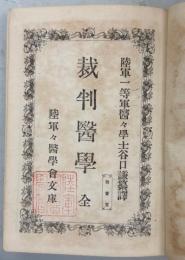 陸軍一等軍醫々學士谷口謙纂譯
裁判醫學 全
陸軍々醫學會文庫